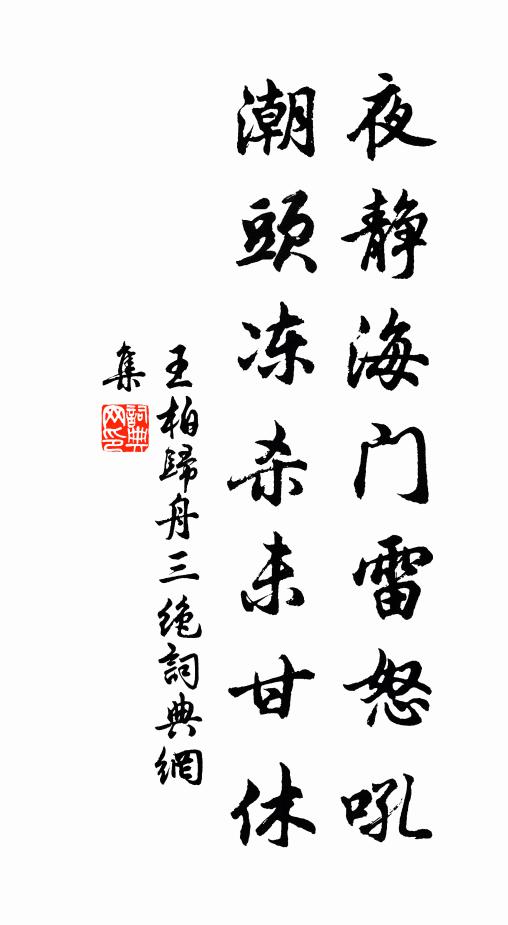 夜静海门雷怒吼
潮頭冻杀未甘休
王柏歸舟三绝詞典網
集
詞典
网印